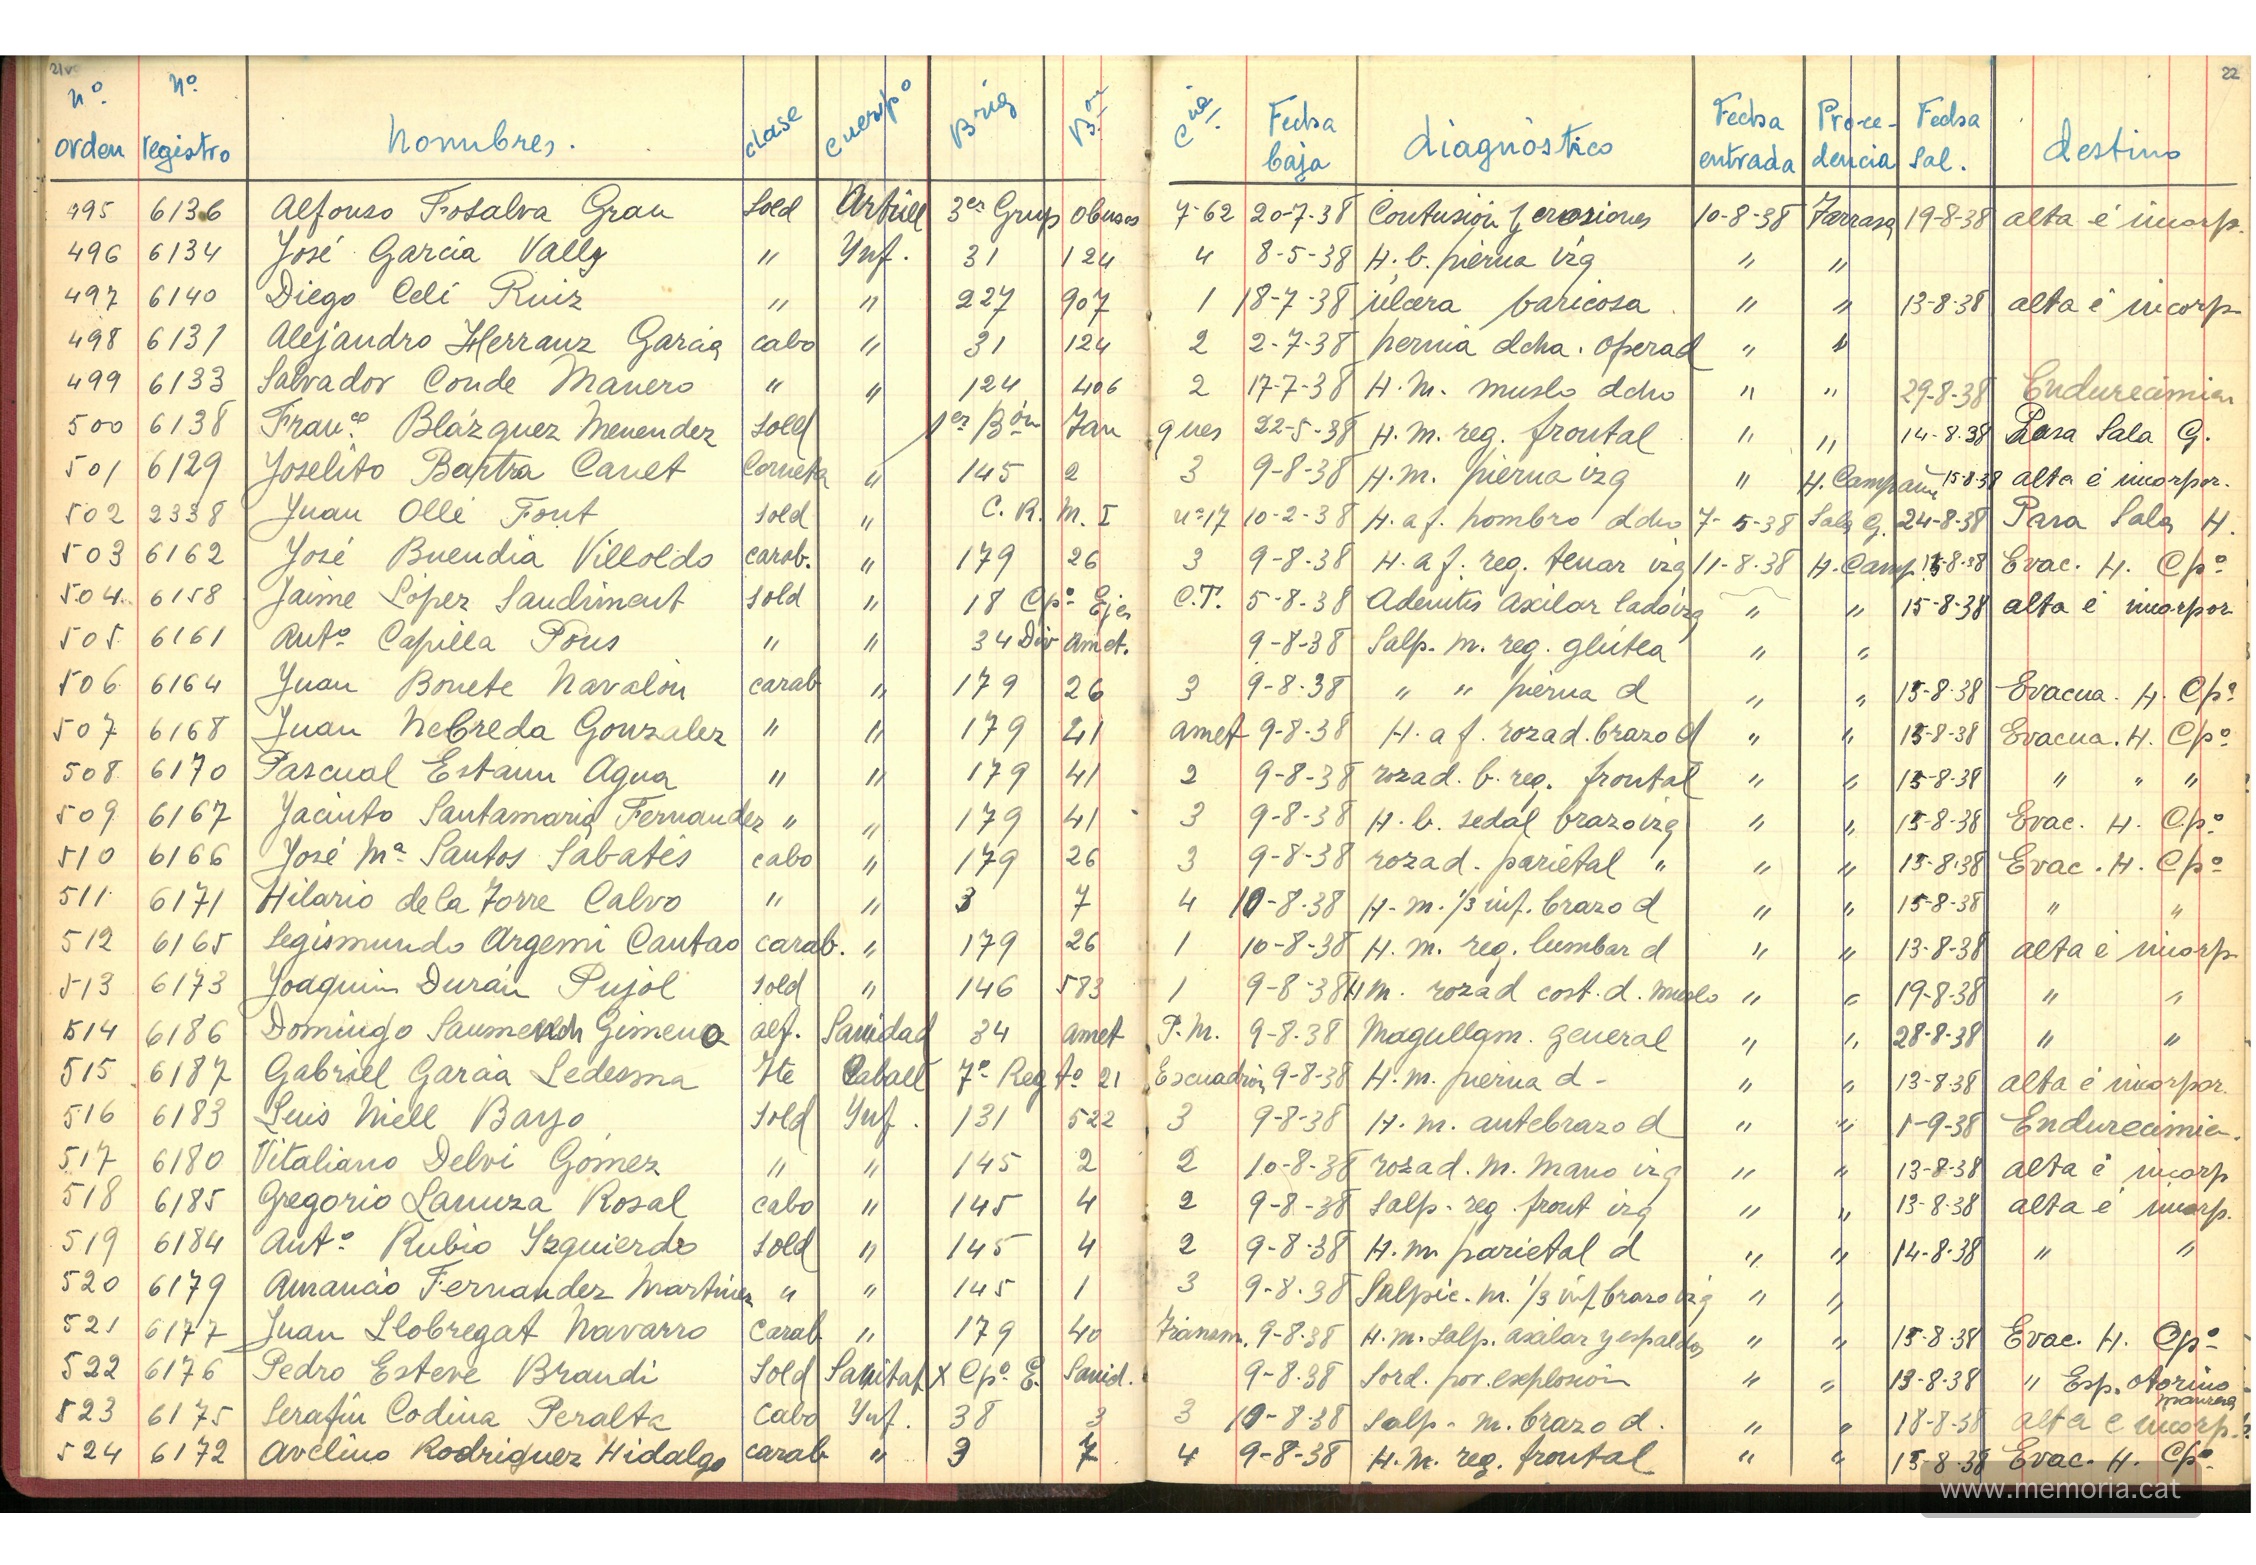 21v 22
nº orden nº registro Nombres. clase cuerpo Brig Bón Cía. Fecha baja diagnóstico Fecha entrada Proce-dencia Fecha Sal. destino
495 6136 Alfonso Fosalva Grau Sold Artill 3er Grup obuses 7-62 20-7-38 Contusión y erosiones 10-8-38 Tarrasa 19-8-38 alta é incorp.
496 6134 José García Valls " Ynf. 31 124 4 8-5-38 H. b. pierna izq " "
497 6140 Diego Celi Ruiz " " 227 907 1 18-7-38 úlcera baricosa " " 13-8-38 alta é incorp
498 6131 Alejandro Herranz García cabo " 31 124 2 2-7-38 hernia dcha. operad " "
499 6133 Salvador Conde Manero " " 124 406 2 17-7-38 H. M. muslo dcho " " 29-8-38 Endurecimien
500 6138 Franco. Blázquez Menendez Sold 1er Bón Tan ques 22-5-38 H. m. reg. frontal " " 14-8-38 Pasa Sala G.
501 6129 Joselito Bartra Canet Corneta " 145 2 3 9-8-38 H. m. pierna izq " H. Campañ 15-8-38 alta é incorpor.
502 2338 Juan Ollé Font Sold " C. R. M. I nº 17 10-2-38 H. a f. hombro dcho 7-5-38 Sala G. 24-8-38 Pasa Sala H.
503 6162 José Buendia Villoldo carab. " 179 26 3 9-8-38 H. a f. reg. tenar izq 11-8-38 H. Camp. 15-8-38 Evac. H. Cpº
504 6158 Jaime López Sandiment Sold " 18 Cpº Ejer C.T. 5-8-38 Adenitis axilar lado izq " " 15-8-38 alta é incorpor
505 6161 Antº Capilla Pous " " 34 Div amet. 9-8-38 Salp. m. reg. glútea " "
506 6164 Juan Bonete Navalón carab " 179 26 3 9-8-38 " " pierna d " " 15-8-38 Evacua. H. Cpº
507 6168 Juan Nebreda Gonzalez " " 179 41 amet 9-8-38 H. a f. rozad. brazo d " " 15-8-38 Evacua. H. Cpº
508 6170 Pascual Estaun Agua " " 179 41 2 9-8-38 rozad. b. reg. frontal " " 15-8-38 " " "
509 6167 Jacinto Santamaria Fernandez " " 179 41 3 9-8-38 H. b. sedal brazo izq " " 15-8-38 Evac. H. Cpº
510 6166 José Mª Santos Sabatés cabo " 179 26 3 9-8-38 rozad. parietal " " " 15-8-38 Evac. H. Cpº
511 6171 Hilario de la Torre Calvo " " 3 7 4 10-8-38 H. m. 1/3 inf. brazo d " " 15-8-38 " "
512 6165 Segismundo Argemi Cantao carab. " 179 26 1 10-8-38 H. m. reg. lumbar d " " 13-8-38 alta é incorp
513 6173 Joaquin Durán Pujol Sold " 146 583 1 9-8-38 H m. rozad cost. d. muslo " " 19-8-38 " "
514 6186 Domingo Gimeno alf. Sanidad 34 amet P. M. 9-8-38 Magullam. general " " 28-8-38 " "
515 6187 Gabriel Garcia Ledesma Tte Caball 7º Reg tº 21 Escuadrón 9-8-38 H. m. pierna d - " " 13-8-38 alta é incorpor.
516 6183 Luis Niell Bayo Sold Ynf. 131 522 3 9-8-38 H. m. antebrazo d " " 1-9-38 Endurecimie.
517 6180 Vitaliano Delvi Gómez " " 145 2 2 10-8-38 rozad. m. mano izq " " 13-8-38 alta é incorp
518 6185 Gregorio Lanuza Rosal cabo " 145 4 2 9-8-38 Salp. reg. front izq " " 13-8-38 alta é incorp.
519 6184 Antº Rubio Yzquierdo Sold " 145 4 2 9-8-38 H. m parietal d " " 14-8-38 " "
520 6179 Amancio Fernandez Martinez " " 145 1 3 9-8-38 Salpic. m. 1/3 inf brazo izq " "
521 6177 Juan Llobregat Navarro Carab " 179 40 Transm. 9-8-38 H. m. Salp. axilar y espaldas " " 15-8-38 Evac. H. Cpº
522 6176 Pedro Esteve Brandi Sold Sanitat X Cpº E. Sanid. 9-8-38 Sord. por explosión " " 13-8-38 " Esp. otorino manresa
523 6175 Serafin Codina Peralta Cabo Ynf. 38 3 3 10-8-38 Salp. m. brazo d. " " 18-8-38 alta é incorp.
524 6172 Avelino Rodriguez Hidalgo carab " 3 7 4 9-8-38 H. m. reg. frontal " " 15-8-38 Evac. H. Cpº
www.memoria.cat